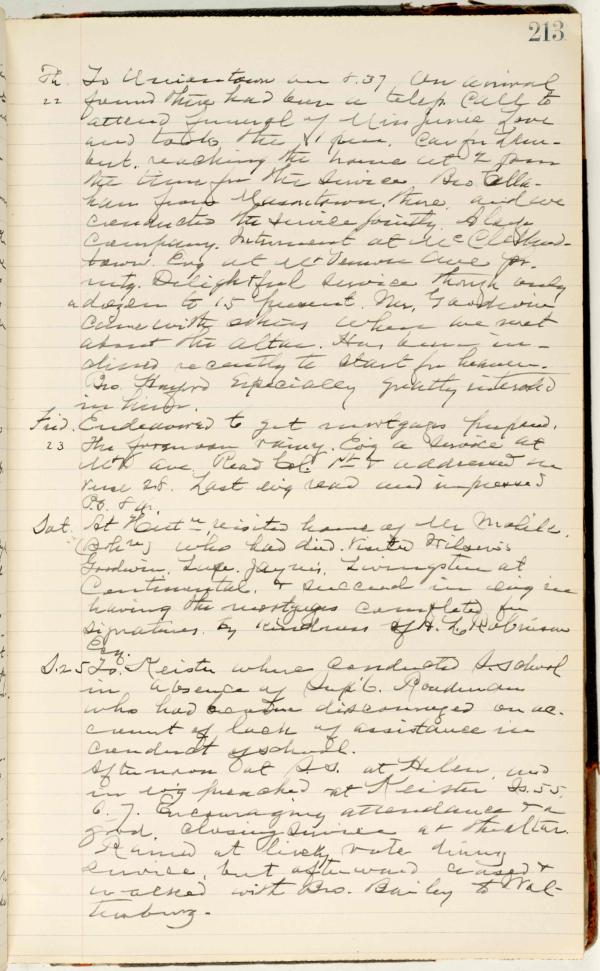 213
Th. To Uniontown on 8.37 On arrival
22 found there had been a telep. call to
attend funeral of Miss Love
and took the 1 p.m. car for
reaching the home at 2 p.m.
the time for the service Bro.
ham from Masontown, there, and we
conducted the service jointly. Large
company. Interment at McClelland-
town. Evg at Mt Vernon Ave
Delightful service though only
a dozen to 15 present. Mr. Goodwin
came with others when we met
about the altar. Has been in-
clined recently to start for heaven.
Bro. especially greatly interested
in him.
Frid. Endeavored to get mortgages prepared.
23 The forenoon rainy. Evg a service at
Mt V ave. Read Col. 1st & addressed on
verse 28. Last evg read and impressed
Sat. At visited home of Mr
who had died. Visited Wilson's
Goodwin, Supt. Livingston at
Continental. & succeed in evg in
having the mortgages completed for
signatures. by kindness of H. L. Robinson
Esq.
S. 25 To Keister where conducted S. school
in absence of Supt. Roadman
who had become discouraged on ac-
count of lack of assistance in
conduct of school.
Afternoon at S.S. at Helen, and
in evg preached at Keister Is. 55.
6. 7. Encouraging attendance & a
good closing service at the altar.
Rained at lively rate during
service, but afterward ceased &
walked with Bro. Bailey to Wal-
tersburg.